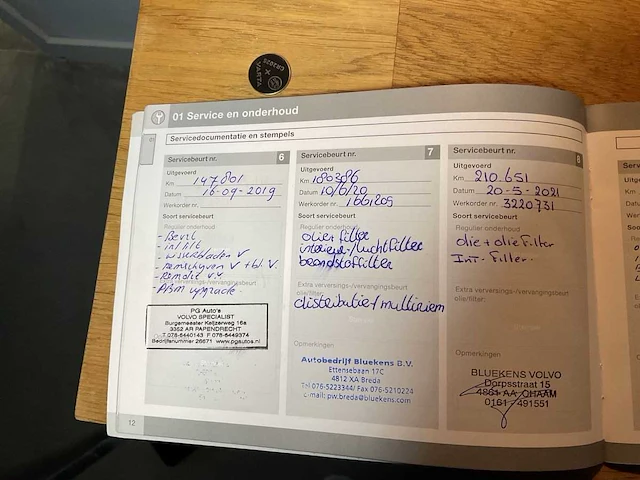 CR2025
VARTA
01 Service en onderhoud
Servicedocumentatie en stempels
Servicebeurt nr. 6
Uitgevoerd
Km 147801
Datum 16-09-2019
Werkorder nr.
Soort servicebeurt
Regulier onderhoud
- int. filt
- wisserbladen v
- remschijven v + bl. v.
- Remolie v.v
Extra verversings-/vervangingsbeurt
PG Auto's
VOLVO SPECIALIST
Burgemeester Keijzerweg 16a
3352 AR PAPENDRECHT
T 078-6440143 F 078-6449374
Bedrijfsnummer 26671 www.pgautos.nl
12
Servicebeurt nr. 7
Uitgevoerd
Km 180386
Datum 10/6/20
Werkorder nr. 1661209
Soort servicebeurt
Regulier onderhoud
olie+ filter
interieur-/luchtfilter
brandstoffilter
Extra verversings-/vervangingsbeurt
olie/filter:
distributie+/multiriem
Opmerkingen
Autobedrijf Bluekens B.V.
Ettensebaan 17C
4812 XA Breda
Tel 076-5223344/ Fax 076-5210224
e-mail: pw.breda@bluekens.com
Servicebeurt nr. 8
Uitgevoerd
Km 210.651
Datum 20-5-2021
Werkorder nr. 3220731
Soort servicebeurt
Regulier onderhoud
olie + olie Filter
Int- Filter.
Extra verversings-/vervangingsbeurt
olie/filter:
Opmerkingen
BLUEKENS VOLVO
Dorpsstraat 15
4861 AA CHAAM
0161 - 491551